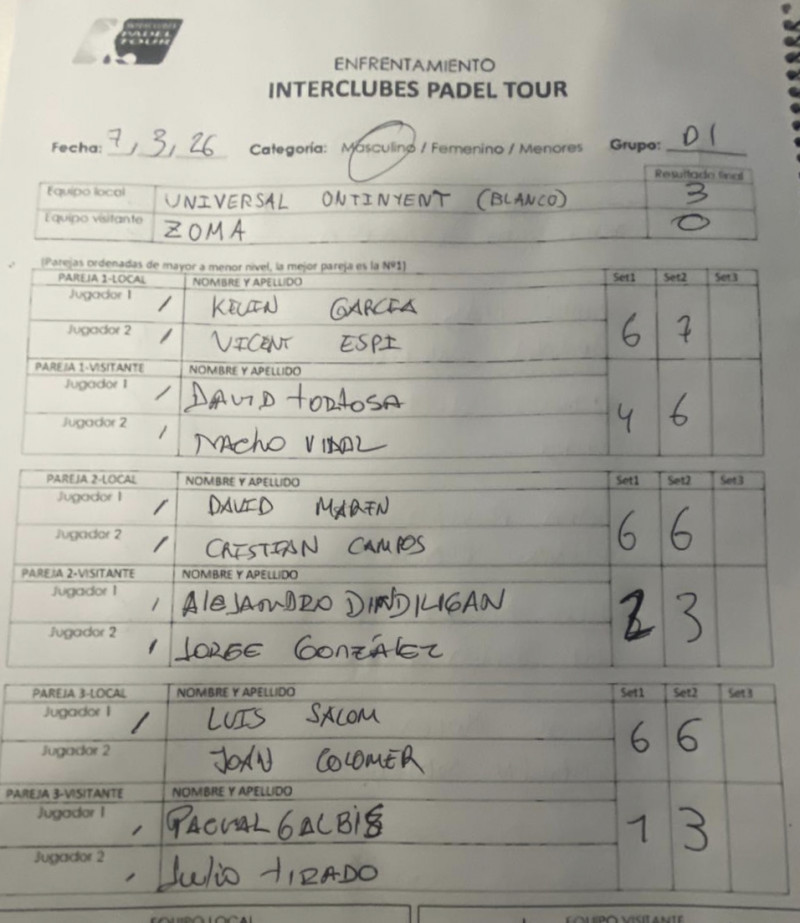 INTERCLUBES
PADEL
TOUR
ENFRENTAMIENTO
INTERCLUBES PADEL TOUR
Fecha: 7, 3, 26 Categoría: Masculino / Femenino / Menores Grupo: D1
Resultado final
Equipo local UNIVERSAL ONTINYENT (BLANCO) 3
Equipo visitante ZOMA 0
(Parejas ordenadas de mayor a menor nivel, la mejor pareja es la Nº1)
PAREJA 1-LOCAL NOMBRE Y APELLIDO Set1 Set2 Set3
Jugador 1 / KEVIN GARCIA
Jugador 2 / VICENT ESPI
6 7
PAREJA 1-VISITANTE NOMBRE Y APELLIDO
Jugador 1 / DAVID TORTOSA
Jugador 2 / NACHO VIDAL
4 6
PAREJA 2-LOCAL NOMBRE Y APELLIDO Set1 Set2 Set3
Jugador 1 / DAVID MARIN
Jugador 2 / CRISTIAN CAMPOS
6 6
PAREJA 2-VISITANTE NOMBRE Y APELLIDO
Jugador 1 / AleJANDRO DINDILIGAN
Jugador 2 / JORGE GONZÁLEZ
2 3
PAREJA 3-LOCAL NOMBRE Y APELLIDO Set1 Set2 Set3
Jugador 1 / LUIS SALOM
Jugador 2 JOAN COLOMER
6 6
PAREJA 3-VISITANTE NOMBRE Y APELLIDO
Jugador 1 / PACUAL GALBIS
Jugador 2 / Julio TIRADO
1 3
EQUIPO LOCAL EQUIPO VISITANTE